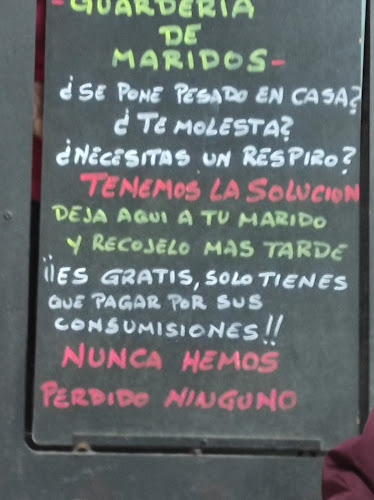 -GUARDERIA
DE
MARIDOS-
¿SE PONE PESADO EN CASA?
¿TE MOLESTA?
¿NECESITAS UN RESPIRO?
TENEMOS LA SOLUCION
DEJA AQUI A TU MARIDO
Y RECOJELO MAS TARDE
¡¡ES GRATIS, SOLO TIENES
QUE PAGAR POR SUS
CONSUMISIONES!!
NUNCA HEMOS
PERDIDO NINGUNO